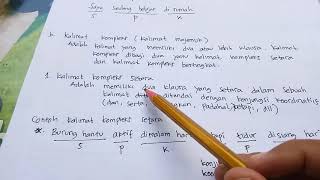 Saya sedang belajar di rumah
S P K
b. Kalimat Kompleks (Kalimat majemuk)
Adalah kalimat yang memiliki dua atau lebih klausa. Kalimat
kompleks dibagi menjadi dua yaitu kalimat kompleks setara
dan kalimat kompleks bertingkat.
1. Kalimat kompleks Setara
Adalah memiliki dua klausa yang setara dalam sebuah
kalimat ditandai dengan konjungsi koordinatif
(dan, serta, padahal, tetapi, dll)
Contoh kalimat kompleks setara
Burung hantu aktif dimalam hari tidur disiang har
S P K P